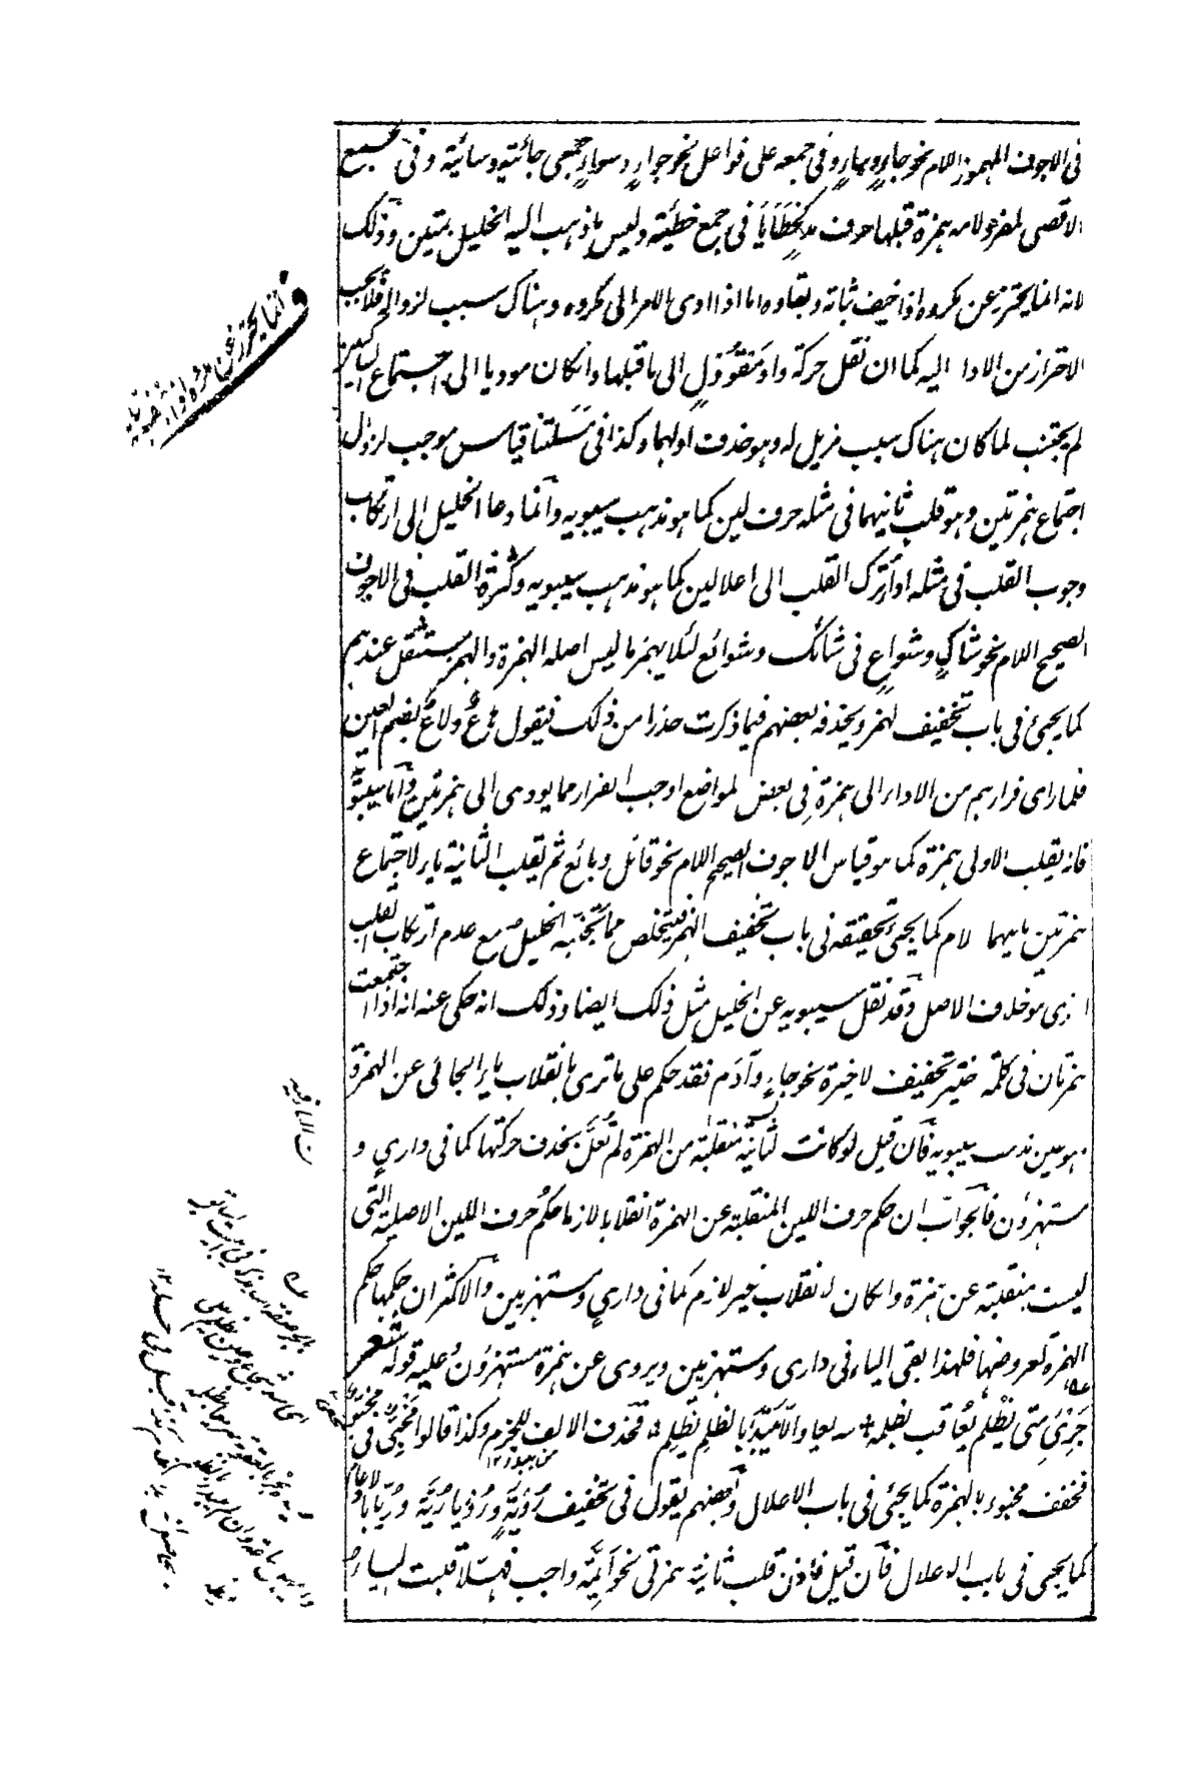 فى الاجوف المهموز اللام نحو جاءٍ وساءٍ وفى جمعه على فواعل نحو جواءٍ وسواءٍ جمعى جائية وسائية وفى الجمع
الاقصى لمفرد لامه همزة قبلها حرف مد كخَطَايَا فى جمع خطيئة وليس ما ذهب اليه الخليل بمتين وذلك
لانه انما يحترز عن مكروه اذا خيف ثباته وبقاوه اما اذا ادى الامر الى مكروه وهناك سبب لزواله فلا يجب
الاحتراز من الادا اليه كما ان نقل حركة واو مَقْوُوْلٍ الى ما قبلها وان كان موديا الى اجتماع الساكنين
لم يجتنب لما كان هناك سبب مزيل له وهو حذف اولهما وكذا فى مسئلتنا قياس موجب لزوال
اجتماع همزتين وهو قلب ثانيهما فى مثله حرف لين كما هو مذهب سيبويه وانما دعا الخليل الى ارتكاب
وجوب القلب فى مثله اداء ترك القلب الى اعلالين كما هو مذهب سيبويه وكثرة القلب فى الاجوف
الصحيح اللام نحو شاكٍ وشواعٍ فى شائك وشوائع لئلا يهمز ما ليس اصله الهمزة والهمز مستثقل عندهم
كما يجئ فى باب تخفيف الهمز ويحذفه بعضهم فيما ذكرت حذرا من ذلك فيقول هاعٌ ولاعٌ بضم العين
فلما راى فرارهم من الاداء الى همزة فى بعض المواضع اوجب الفرار مما يودى الى همزتين واما سيبويه
فانه يقلب الاولى همزة كما هو قياس الاجوف الصحيح اللام نحو قائل وبائع ثم يقلب الثانية ياء لاجتماع
همزتين ثانيهما لام كما يجئ تحقيقه فى باب تخفيف الهمز فيتخلص مما تجنبه الخليل مع عدم ارتكاب القلب
الذى هو خلاف الاصل وقد نقل سيبويه عن الخليل مثل ذلك ايضا وذلك انه حكى عنه انه اذا اجتمعت
همزتان فى كلمة اختير تخفيف الاخيرة نحو جاءٍ وآدم فقد حكم على ما ترى بانقلاب ياء الجائى عن الهمزة
وهو عين مذهب سيبويه فان قيل لو كانت الثانية منقلبة من الهمزة لم تُعَلَّ بحذف حركتها كما فى داريٍ و
مستهزؤن فالجواب ان حكم حرف اللين المنقلبة عن الهمزة انقلابا لازما حكم حرف اللين الاصلية التى
ليست بمنقلبة عن همزة وان كان الانقلاب غير لازم كما فى داريٍ ومستهزيين والاكثر ان حكمها حكم
الهمزة لعروضها فلهذا بقى الياء فى دارى ومستهزيين ويروى عن همزة مستهزؤن وعليه قوله شعر
جَرِيْءٍ متى يُظْلم يُعاقب بظلمه * سريعا والا يُبْدَ بالظلم يَظْلِم * فحذف الالف للجزم وكذا قالوا مَخْبِيٌّ فى مَخْبُوءٍ
فخفف مخبوء بالهمزة كما يجئ فى باب الاعلال وبعضهم يقول فى تخفيف رُؤْيَةٍ ورُؤْيا رُيَّة ورُيَّا بالادغام
كما يجئ فى باب الاعلال فان قيل فاذن قلب ثانية همزتى نحو اَئِمَّة واجب فهلا قلبت الياء
ف انما يحترز عن مكروه اذا خيف ثباته